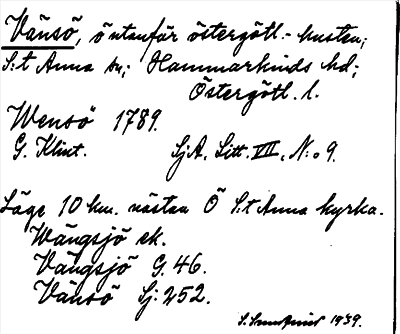 Vänsö, ö utanför östergötl.-kusten;
S:t Anna sn; Hammarkinds hd;
Östergötl. l.
Wensö 1789.
G. Klint. SjA. Litt. VIII, N:o 9.
Läge 10 km. nästan Ö S:t Anna kyrka.
Wängsjö ek.
Vängsjö G. 46.
Vänsö Sj: 252.
1939.